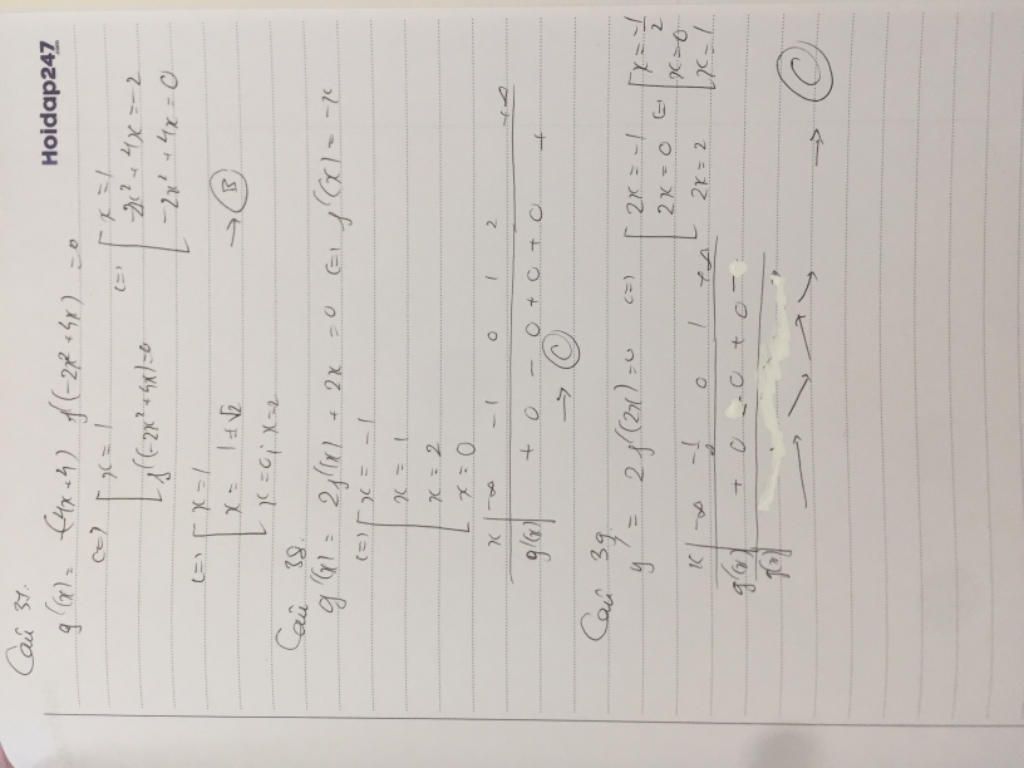 Hoidap247
Câu 37.
g'(x) = (-4x+4) f'(-2x²+4x) = 0
(=) [ x = 1
f'(-2x²+4x)=0
(=) [ x = 1
-2x²+4x = -2
-2x²+4x = 0
(=) [ x = 1
x = 1±√2
x = 0; x = 2
→ B
Câu 38.
g'(x) = 2f'(x) + 2x = 0 (=) f'(x) = -x
(=) [ x = -1
x = 1
x = 2
x = 0
x | -∞ -1 0 1 2 +∞
g'(x) | + 0 - 0 + 0 + 0 +
→ C
Câu 39.
y' = 2f'(2x) = 0 (=) [ 2x = -1
2x = 0
2x = 2
(=) [ x = -1/2
x = 0
x = 1
x | -∞ 0 1 +∞
g'(x) | + 0 - 0 + 0 -
→ C